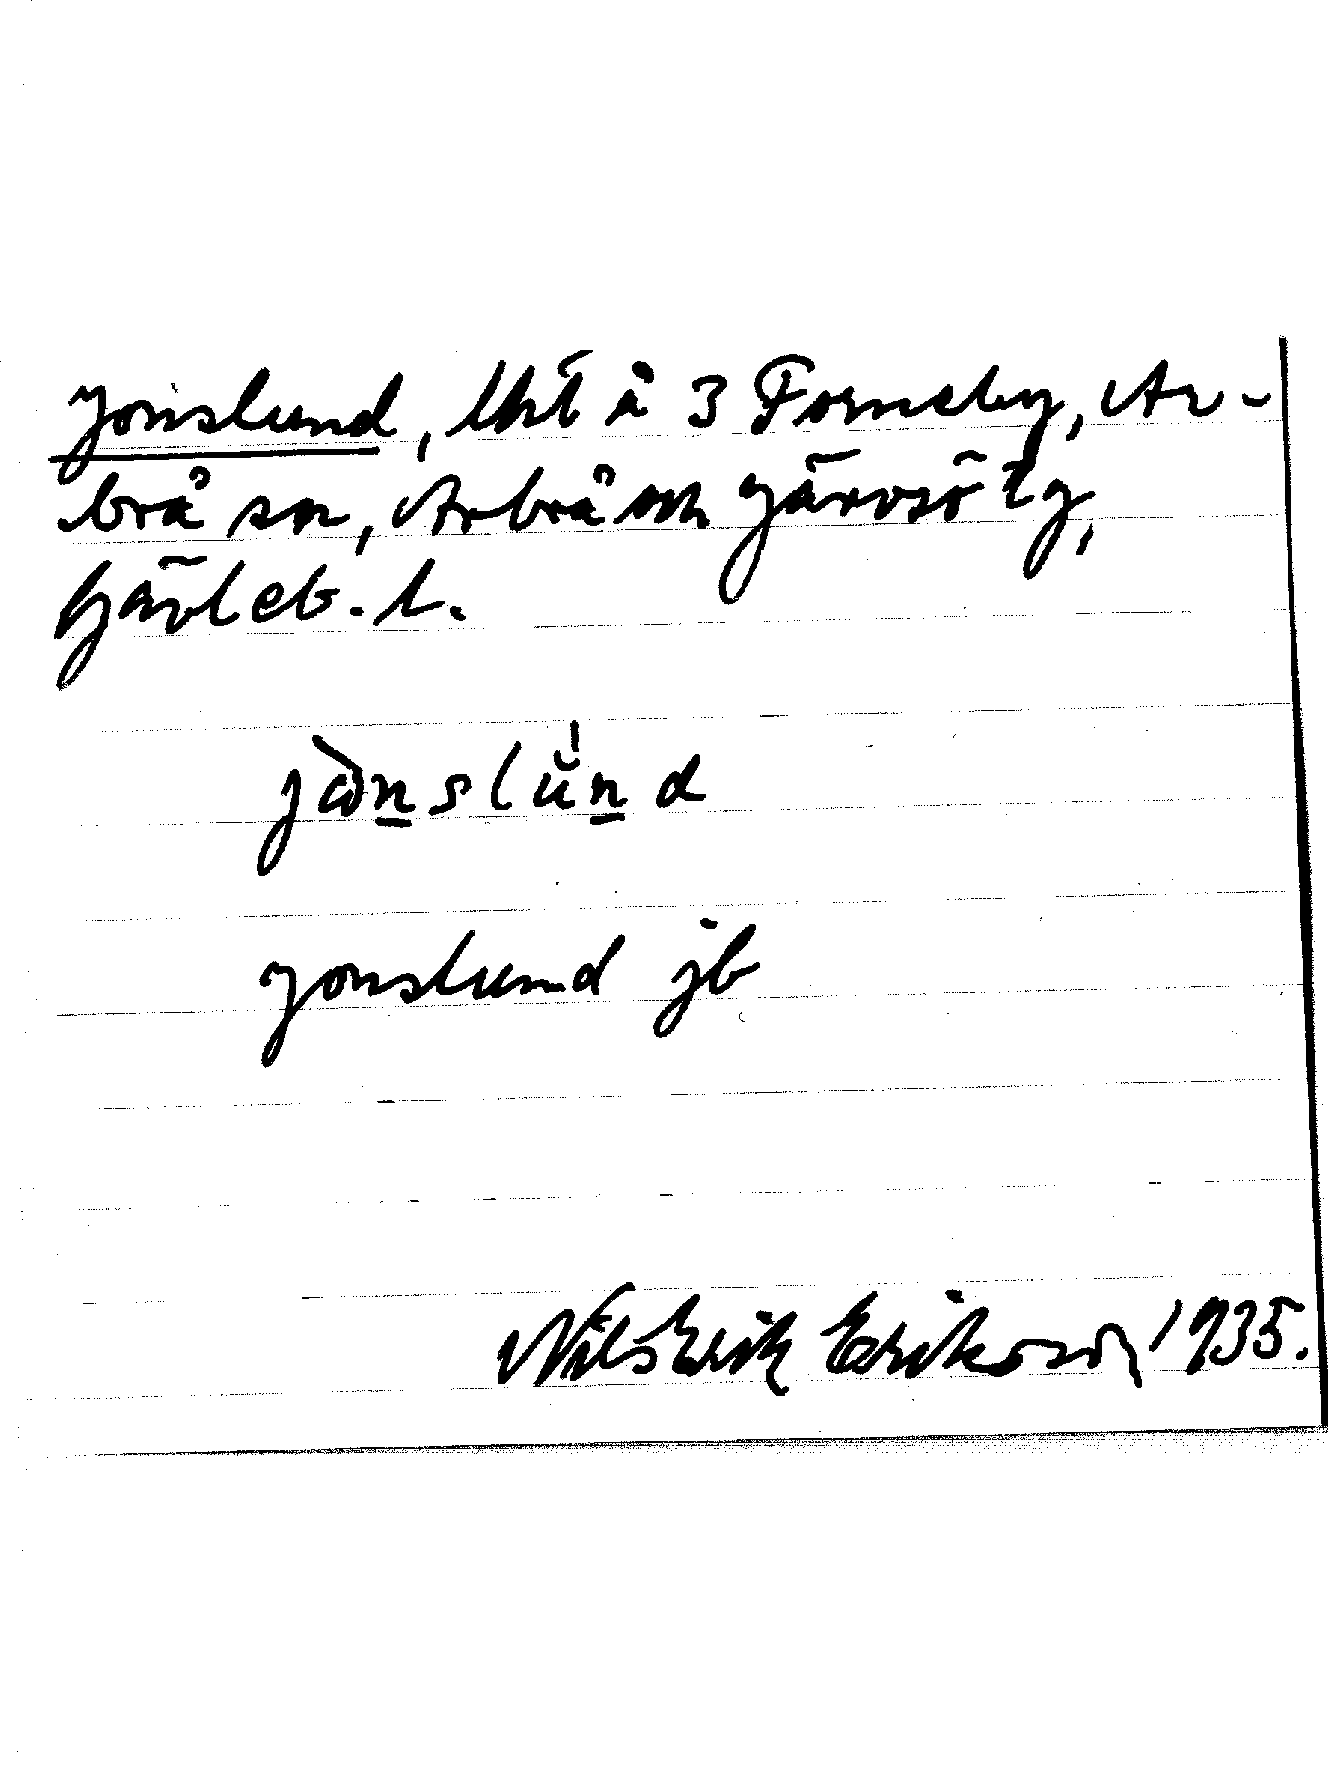 Jonslund, lht å 3 Forneby, Ar-
brå sn, Arbrå och Järvsö tg,
Gävleb. l.
Jonslund jb
Nils Erik Eriksson 1935.